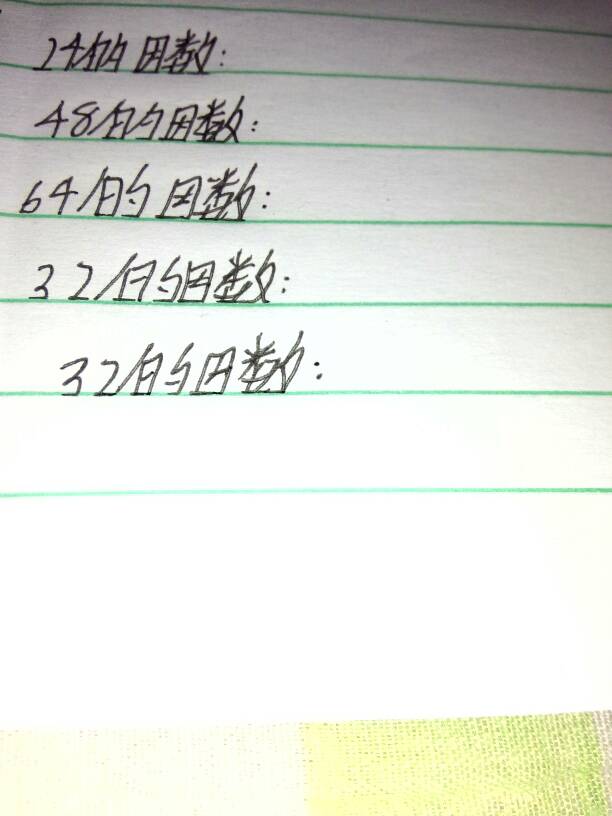 24的因数:
48的因数:
64的因数:
32的因数:
32的因数: